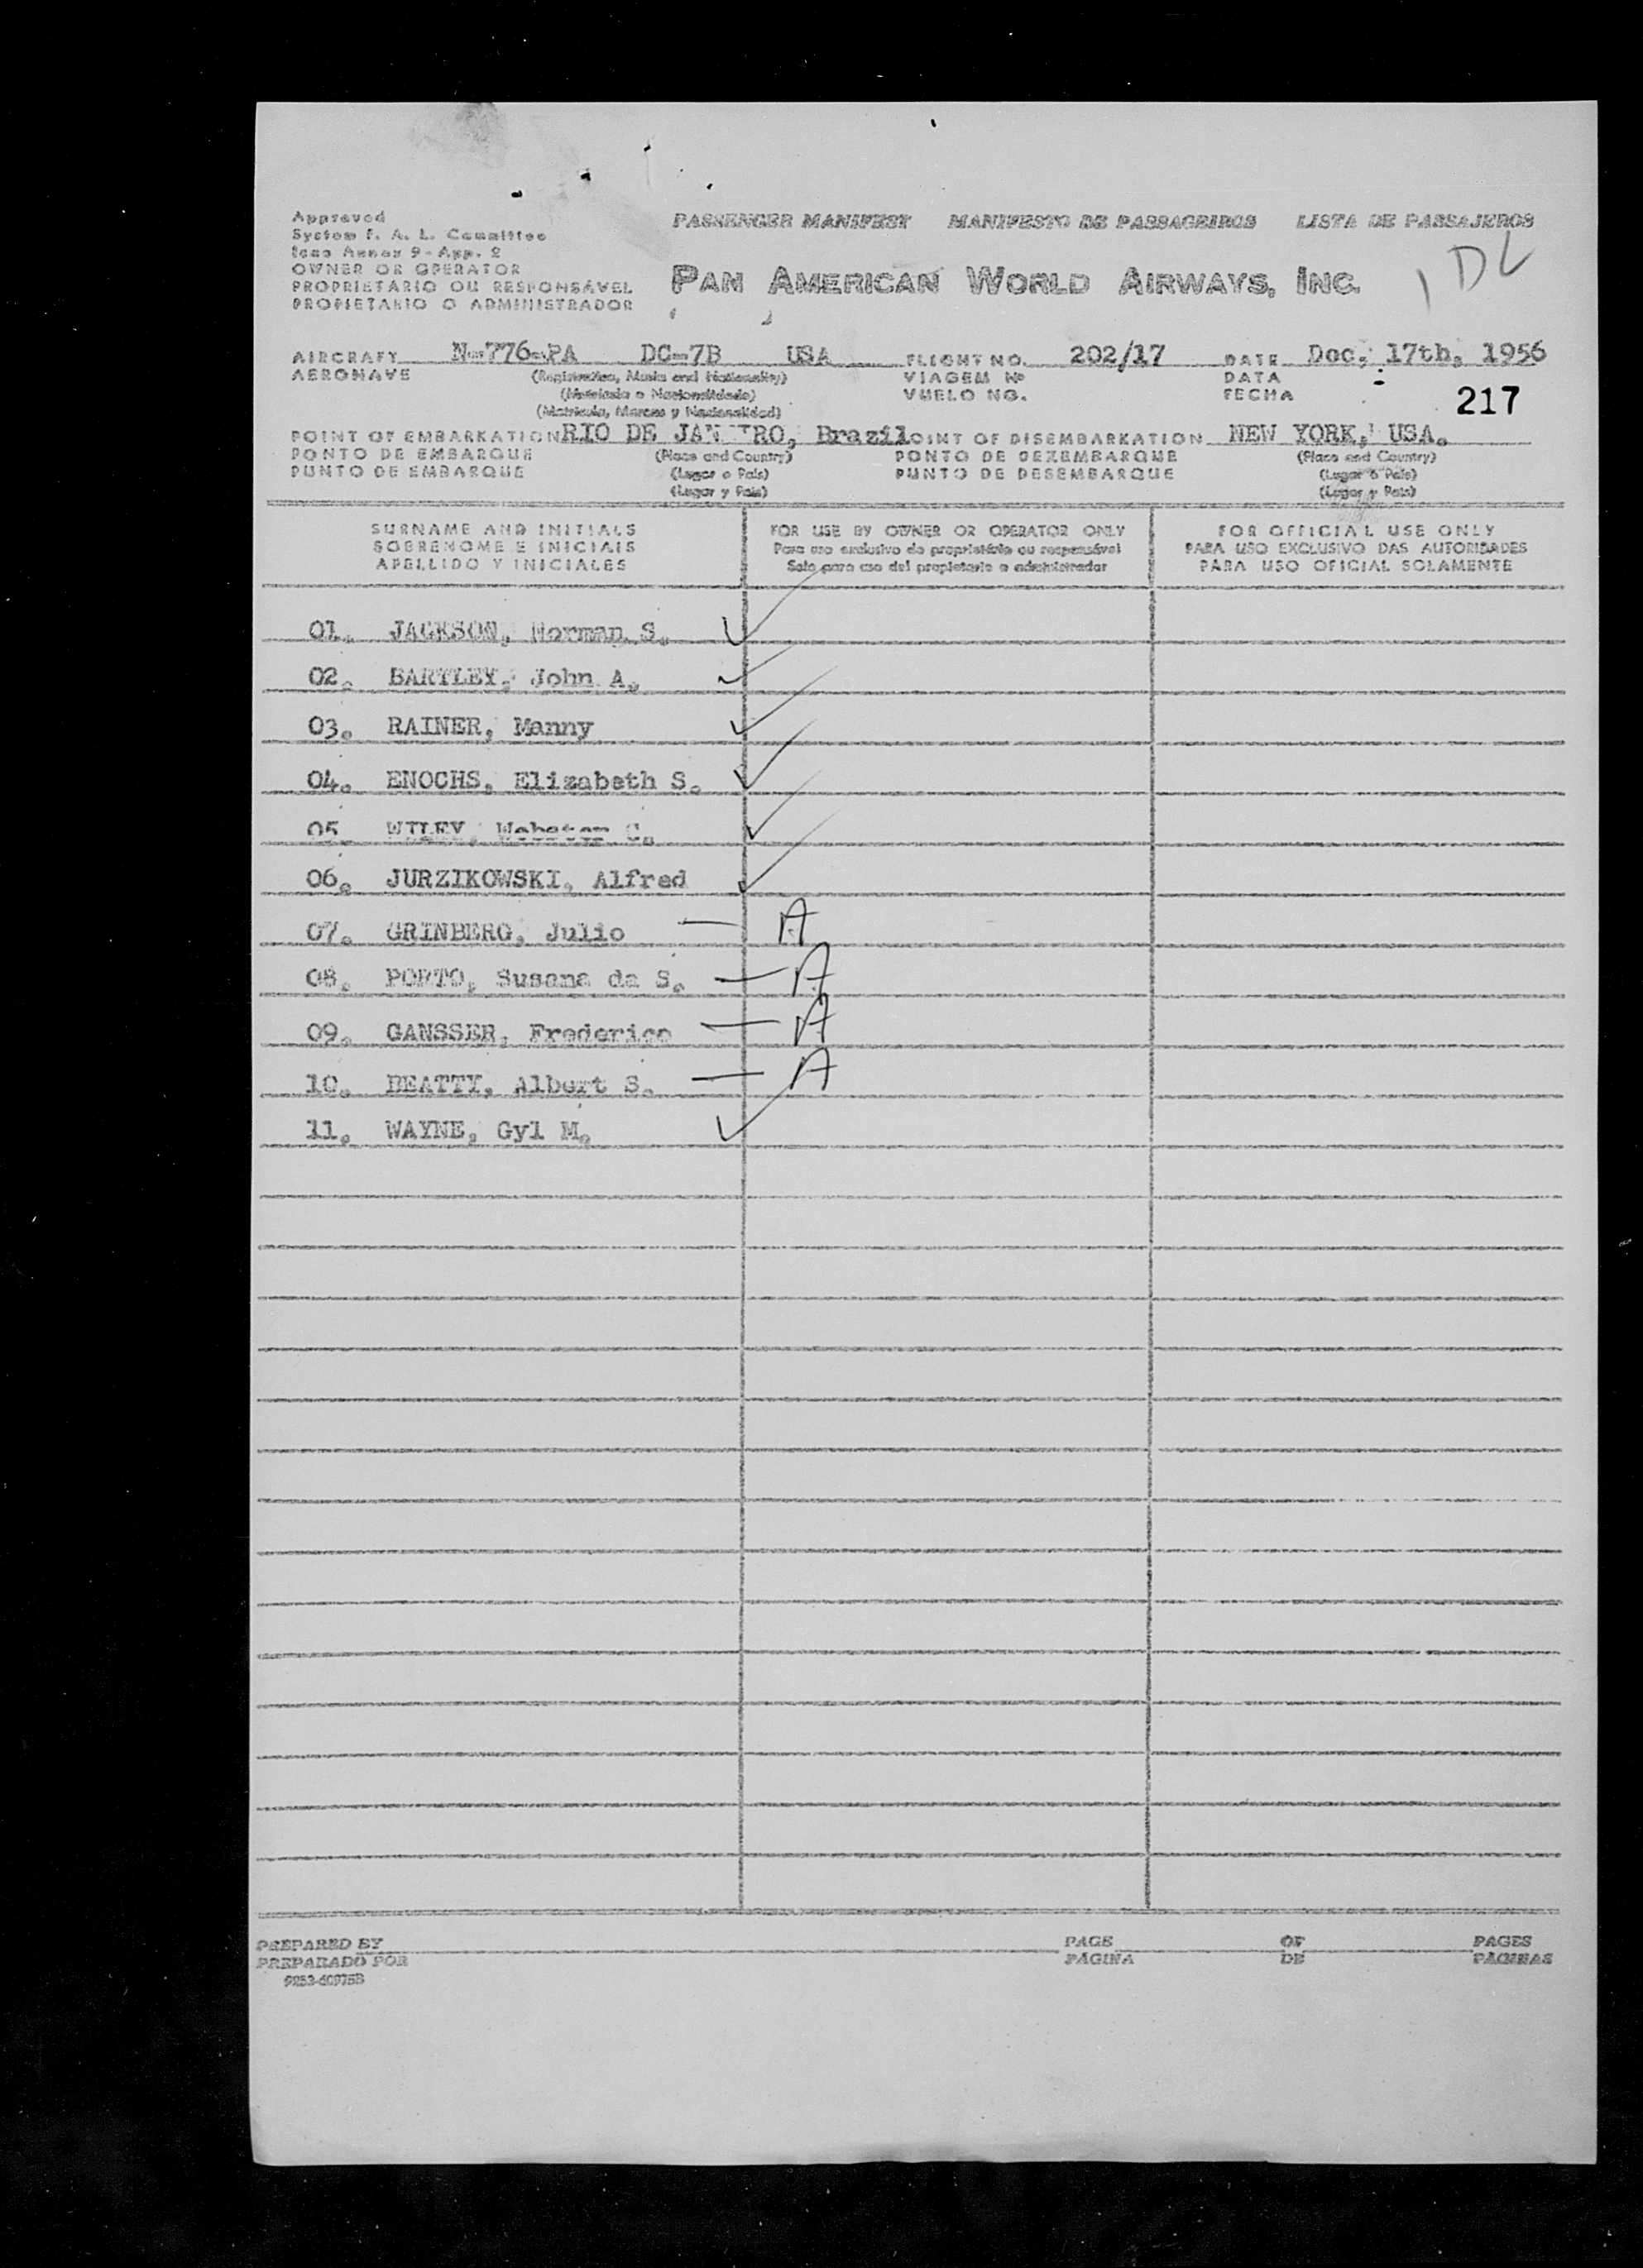 Approved
System F. A. L. Committee
Icao Annex 9 - App. 2
OWNER OR OPERATOR
PROPRIETÁRIO OU RESPONSÁVEL
PROPIETARIO O ADMINISTRADOR
PASSENGER MANIFEST MANIFESTO DE PASSAGEIROS LISTA DE PASAJEROS
PAN AMERICAN WORLD AIRWAYS, INC.
1 DL
AIRCRAFT N-776-PA DC-7B USA FLIGHT NO. 202/17 DATE Dec. 17th, 1956
AERONAVE (Registration, Marks and Nationality) VIAGEM Nº DATA
(Matrícula e Nacionalidade) VUELO NO. FECHA 217
(Matrícula, Marcas y Nacionalidad)
POINT OF EMBARKATION RIO DE JANEIRO, Brazil POINT OF DISEMBARKATION NEW YORK, USA.
PONTO DE EMBARQUE (Place and Country) PONTO DE DEZEMBARQUE (Place and Country)
PUNTO DE EMBARQUE (Lugar e País) PUNTO DE DESEMBARQUE (Lugar e País)
(Lugar y País) (Lugar y País)
SURNAME AND INITIALS FOR USE BY OWNER OR OPERATOR ONLY FOR OFFICIAL USE ONLY
SOBRENOME E INICIAIS Para uso exclusivo do proprietário ou responsável PARA USO EXCLUSIVO DAS AUTORIDADES
APELLIDO Y INICIALES Solo para uso del propietario o administrador PARA USO OFICIAL SOLAMENTE
01. JACKSON, Norman S. ✓
02. BARTLEY, John A. ✓
03. RAINER, Manny ✓
04. ENOCHS, Elizabeth S. ✓
05. WILEY, Webster C. ✓
06. JURZIKOWSKI, Alfred ✓
07. GRINBERG, Julio — A
08. PORTO, Susana da S. — A
09. GANSSER, Frederico — A
10. BEATTY, Albert S. — A
11. WAYNE, Gyl M. ✓
PREPARED BY PAGE OF PAGES
PREPARADO POR PÁGINA DE PÁGINAS
9853-60975B